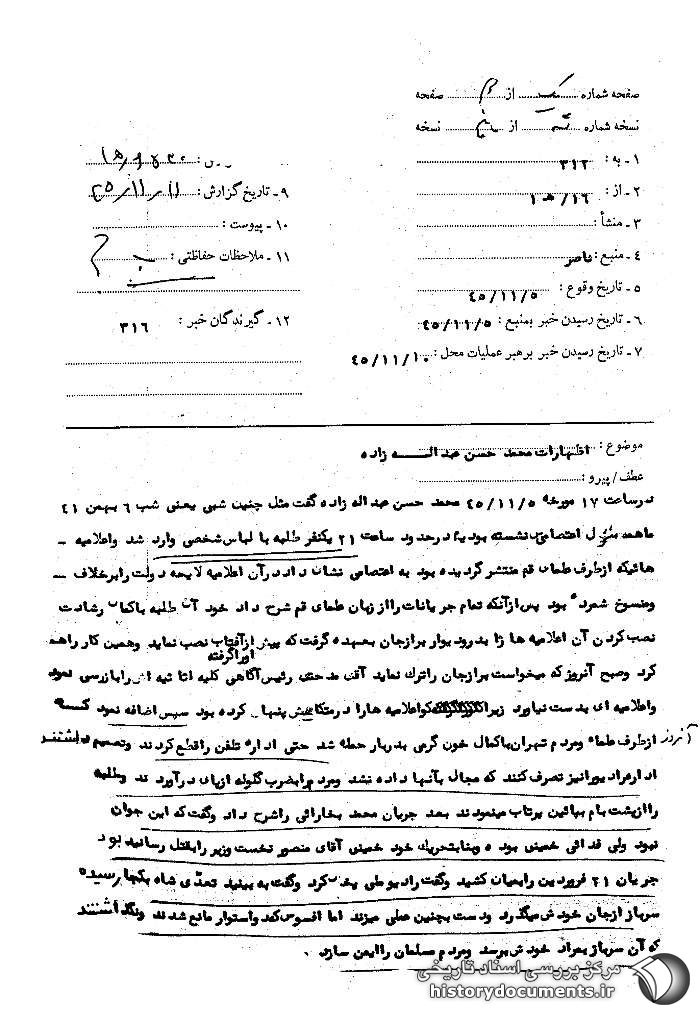 صفحه شماره یک از م صفحه
نسخه شماره سه از پنج نسخه
۱ـ به : ۳۱۲
۲ـ از : ۱۶/ هـ ۱
۳ـ منشأ :
۴ـ منبع : ناصر
۵ـ تاریخ وقوع : ۴۵/۱۱/۵
۶ـ تاریخ رسیدن خبر بمنبع : ۴۵/۱۱/۵
۷ـ تاریخ رسیدن خبر برهبر عملیات محل : ۴۵/۱۱/۱۰
۹ـ تاریخ گزارش : ۴۵/۱۱/۱۱
۱۰ـ پیوست :
۱۱ـ ملاحظات حفاظتی :
۱۲ـ گیرندگان خبر : ۳۱۶
موضوع : اظهارات محمد حسن عبداله زاده
عطف/پیرو :
درساعت ۱۷ مورخه ۴۵/۱۱/۵ محمد حسن عبداله زاده گفت مثل چنین شبی یعنی شب ۶ بهمن ۴۱
ماهمه منزل اعتصامی نشسته بودیم درحدود ساعت ۲۱ یکنفر طلبه با لباس شخصی وارد شد واعلامیه ـ
هائیکه ازطرف علمای قم منتشر گردیده بود به اعتصامی نشان داد درآن اعلامیه لایحه دولت رابرخلاف ـ
ومنسوخ شمرده بود پس ازآنکه تمام جریانات رااز زبان علمای قم شرح داد خود آن طلبه باکمال رشادت
نصب کردن آن اعلامیه ها را بدرودیوار برازجان بعهده گرفت که پیش ازآفتاب نصب نماید وهمین کار راهم
اوراگرفته
کرد وصبح آنروز که میخواست برازجان راترک نماید آقای مدحتی رئیس آگاهی کلیه اثاثیه اش رابازرسی نمود
واعلامیه ای بدست نیاورد زیرا کواعلامیه هارا درمتکایش پنهان کرده بود سپس اضافه نمود کسه
آنروز ازطرف علماء ومردم تهران باکمال خون گرمی بدربار حمله شد حتی اداره تلفن راقطع کردند وتصمیم داشتند
اداره رادیورانیز تصرف کنند که مجال بآنها داده نشد ومردم رابضرب گلوله ازپای درآورد ند وطلبه
راازپشت بام بپائین پرتاب مینمودند بعد جریان محمد بخارائی راشرح داد وگفت که این جوان
نبود ولی فدائی خمینی بوده وبنابتحریک خود خمینی آقای منصور نخست وزیر رابقتل رسانید بود
جریان ۲۱ فروردین رابمیان کشید وگفت رادیو ملی پخش کرد وگفت به بینید تعدّی شاه بکجا رسیده
سرباز ازجان خودش میگذرد ودست بچنین عملی میزند اما افسوس که دواستوار مانع شدند ونگذاشتند
که آن سرباز بمراد خودش برسد ومردم مسلمان راایمن سازد .
مرکز بررسی اسناد تاریخی
historydocuments.ir